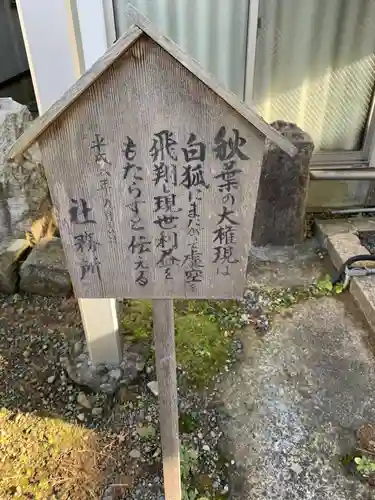 秋葉の大権現は
白狐にまたがり虚空を
飛翔し現世利益を
もたらすと伝える
平成八年
社務所